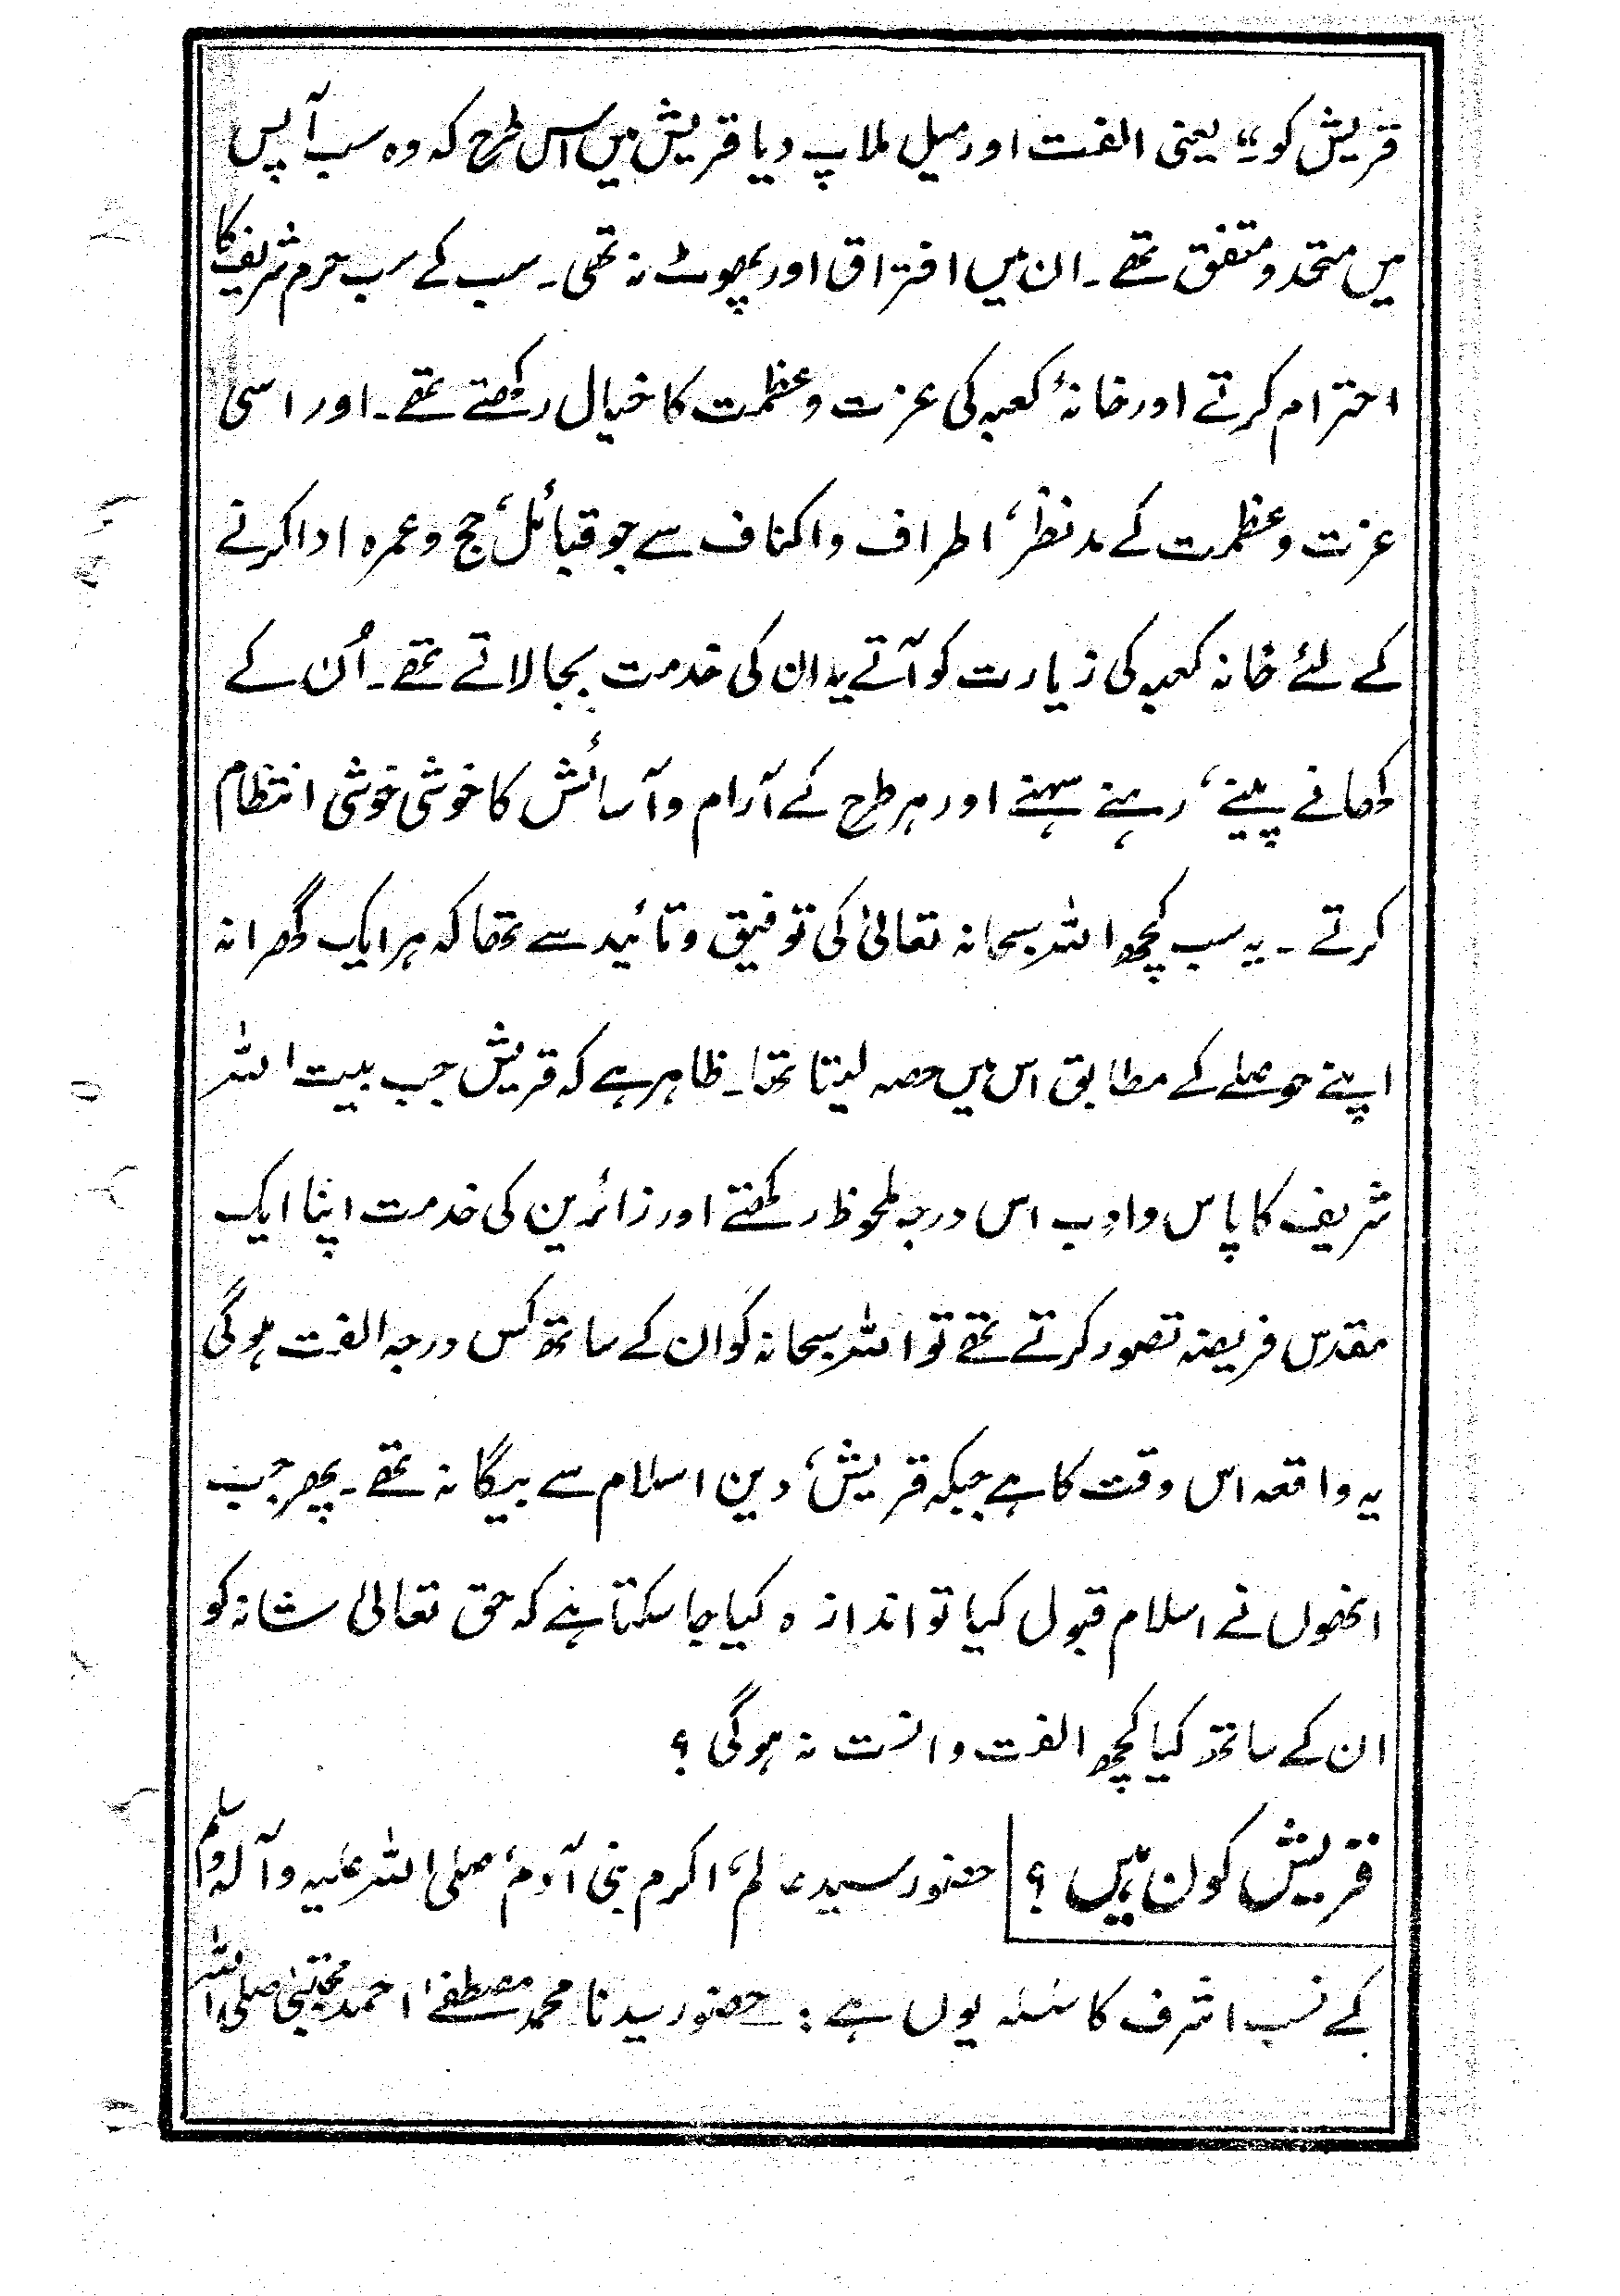 قریش کو۔“ یعنی الفت اور میل ملاپ دیا قریش میں اس طرح کہ وہ سب آپس
میں متحد و متفق تھے۔ ان میں افتراق اور پھوٹ نہ تھی۔ سب کے سب حرم شریف کا
احترام کرتے اور خانۂ کعبہ کی عزت و عظمت کا خیال رکھتے تھے۔ اور اسی
عزت و عظمت کے مدنظر، اطراف و اکناف سے جو قبائل، حج و عمرہ ادا کرنے
کے لئے خانہ کعبہ کی زیارت کو آتے یہ ان کی خدمت بجا لاتے تھے۔ اُن کے
کھانے پینے، رہنے سہنے اور ہر طرح کے آرام و آسائش کا خوشی خوشی انتظام
کرتے ۔ یہ سب کچھ اللہ سبحانہ تعالیٰ کی توفیق و تائید سے تھا کہ ہر ایک گھرانہ
اپنے حوصلے کے مطابق اس میں حصہ لیتا تھا۔ ظاہر ہے کہ قریش جب بیت اللہ
شریف کا پاس و ادب اس درجہ ملحوظ رکھتے اور زائرین کی خدمت اپنا ایک
مقدس فریضہ تصور کرتے تھے تو اللہ سبحانہ کو ان کے ساتھ کس درجہ الفت ہوگی
یہ واقعہ اس وقت کا ہے جبکہ قریش، دین اسلام سے بیگانہ تھے۔ پھر جب
انھوں نے اسلام قبول کیا تو اندازہ کیا جا سکتا ہے کہ حق تعالیٰ شانہ کو
ان کے ساتھ کیا کچھ الفت و انست نہ ہوگی ؟
قریش کون ہیں ؟ حضور سید عالم، اکرم بنی آدم، صلی اللہ علیہ وآلہ وسلم
کے نسب اشرف کا سلسلہ یوں ہے : حضور سیدنا محمد مصطفےٰ احمد مجتبیٰ صلی اللہ